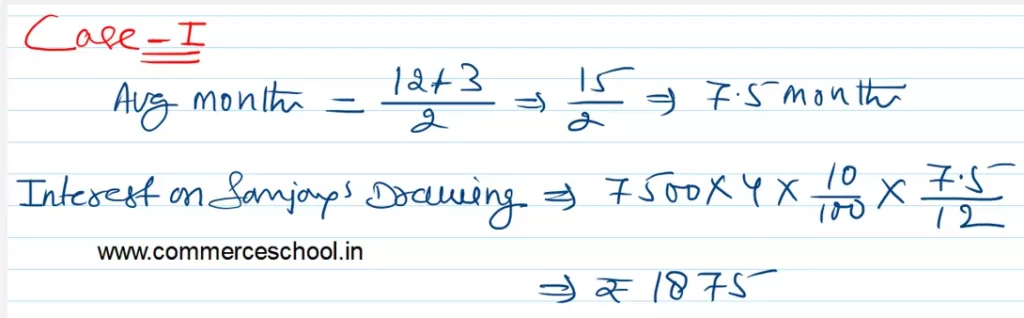 Case - I
Avg month = 12+3/2 ⇒ 15/2 ⇒ 7.5 month
Interest on Sanjay's Drawing ⇒ 7500 X 4 X 10/100 X 7.5/12
www.commerceschool.in
⇒ ₹ 1875